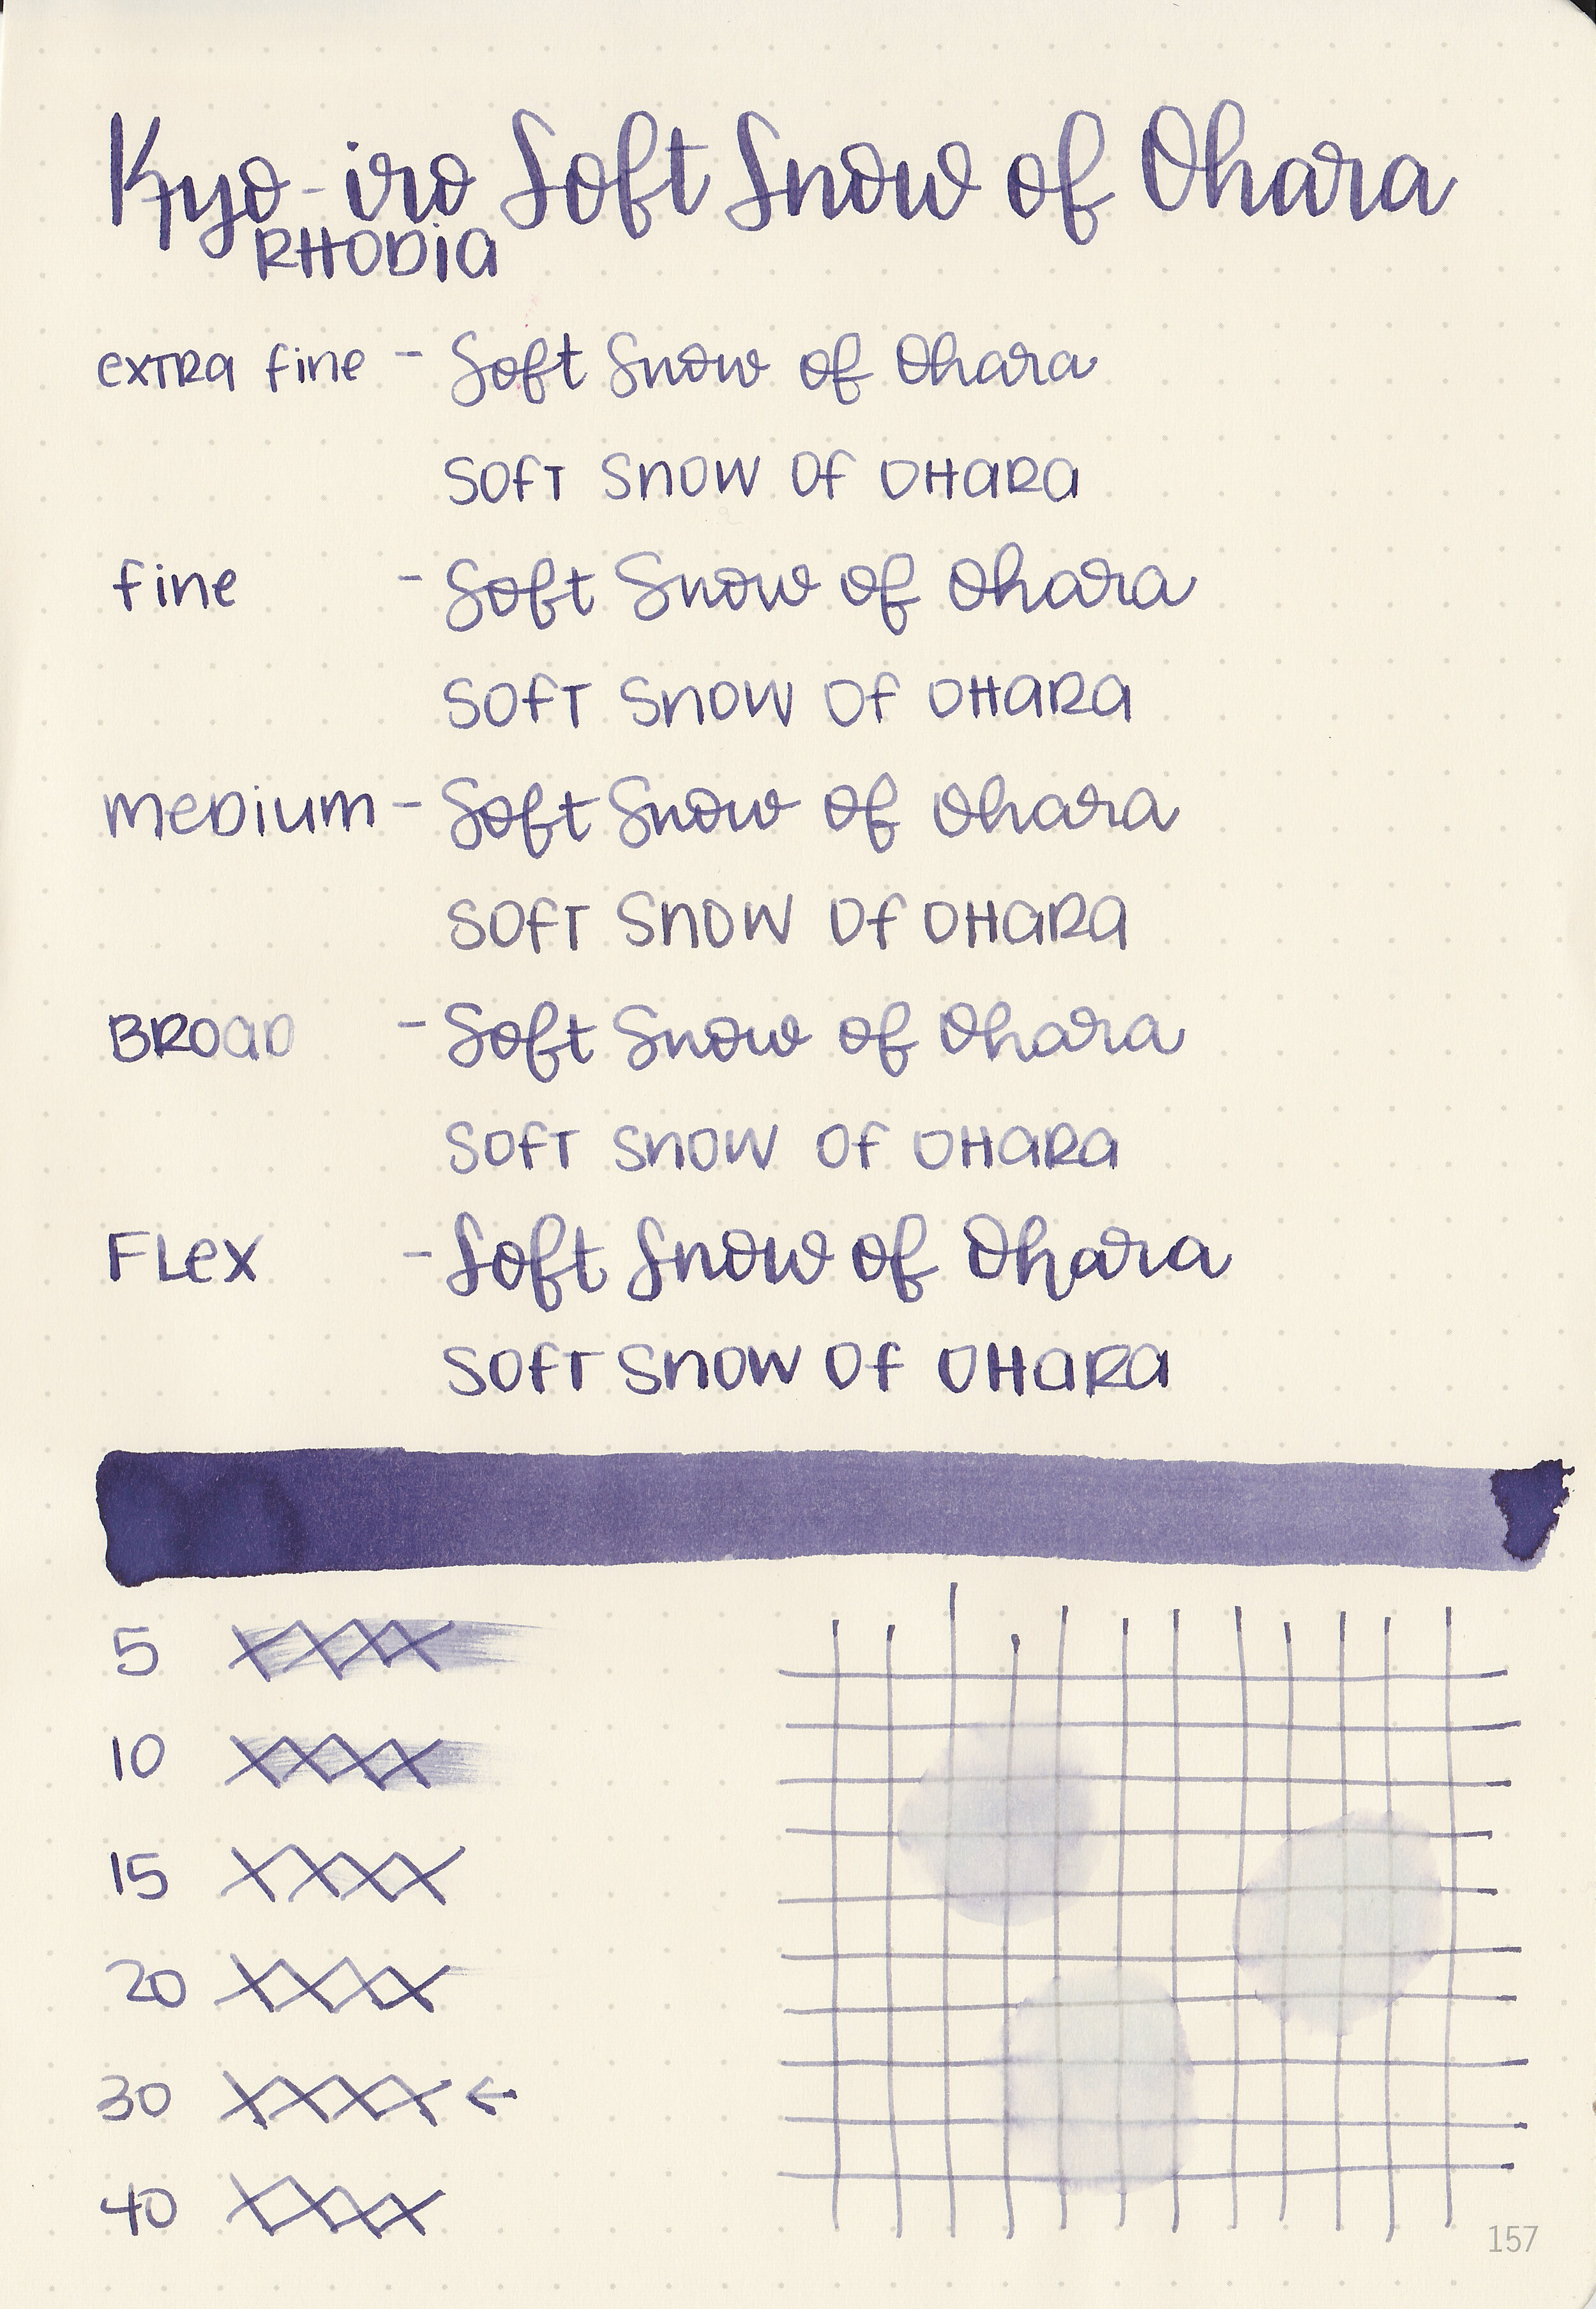 Kyo-iro Soft Snow of Ohara
RHODIA
extra fine - Soft Snow of Ohara
SOFT SNOW OF OHARA
fine - Soft Snow of Ohara
SOFT SNOW OF OHARA
MEDIUM - Soft Snow of Ohara
SOFT SNOW OF OHARA
BROAD - Soft Snow of Ohara
SOFT SNOW OF OHARA
FLEX - Soft Snow of Ohara
SOFT SNOW OF OHARA
5 XXXX
10 XXXX
15 XXXX
20 XXXX
30 XXXX ←
40 XXXX
157